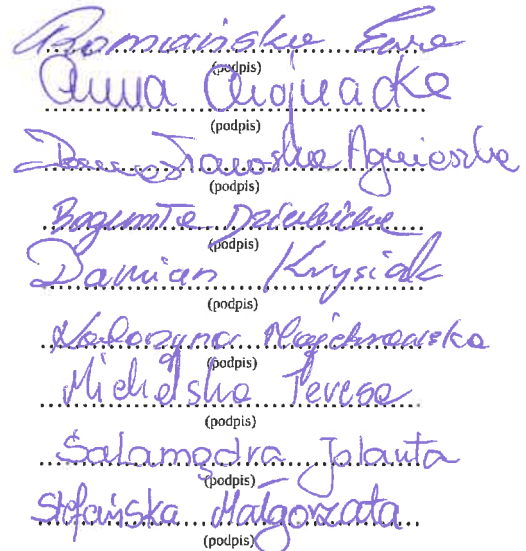 Romańska Ewa
(podpis)
Anna Chojnacka
(podpis)
Agnieszka
(podpis)
Bogumiła Dzierbicka
(podpis)
Damian Krysiak
(podpis)
Katarzyna Majchrowska
(podpis)
Michalska Teresa
(podpis)
Salamądra Jolanta
(podpis)
Stefańska Małgorzata
(podpis)